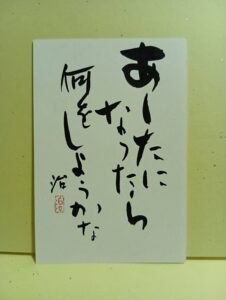 あしたに
なったら
何を
しようかな
治